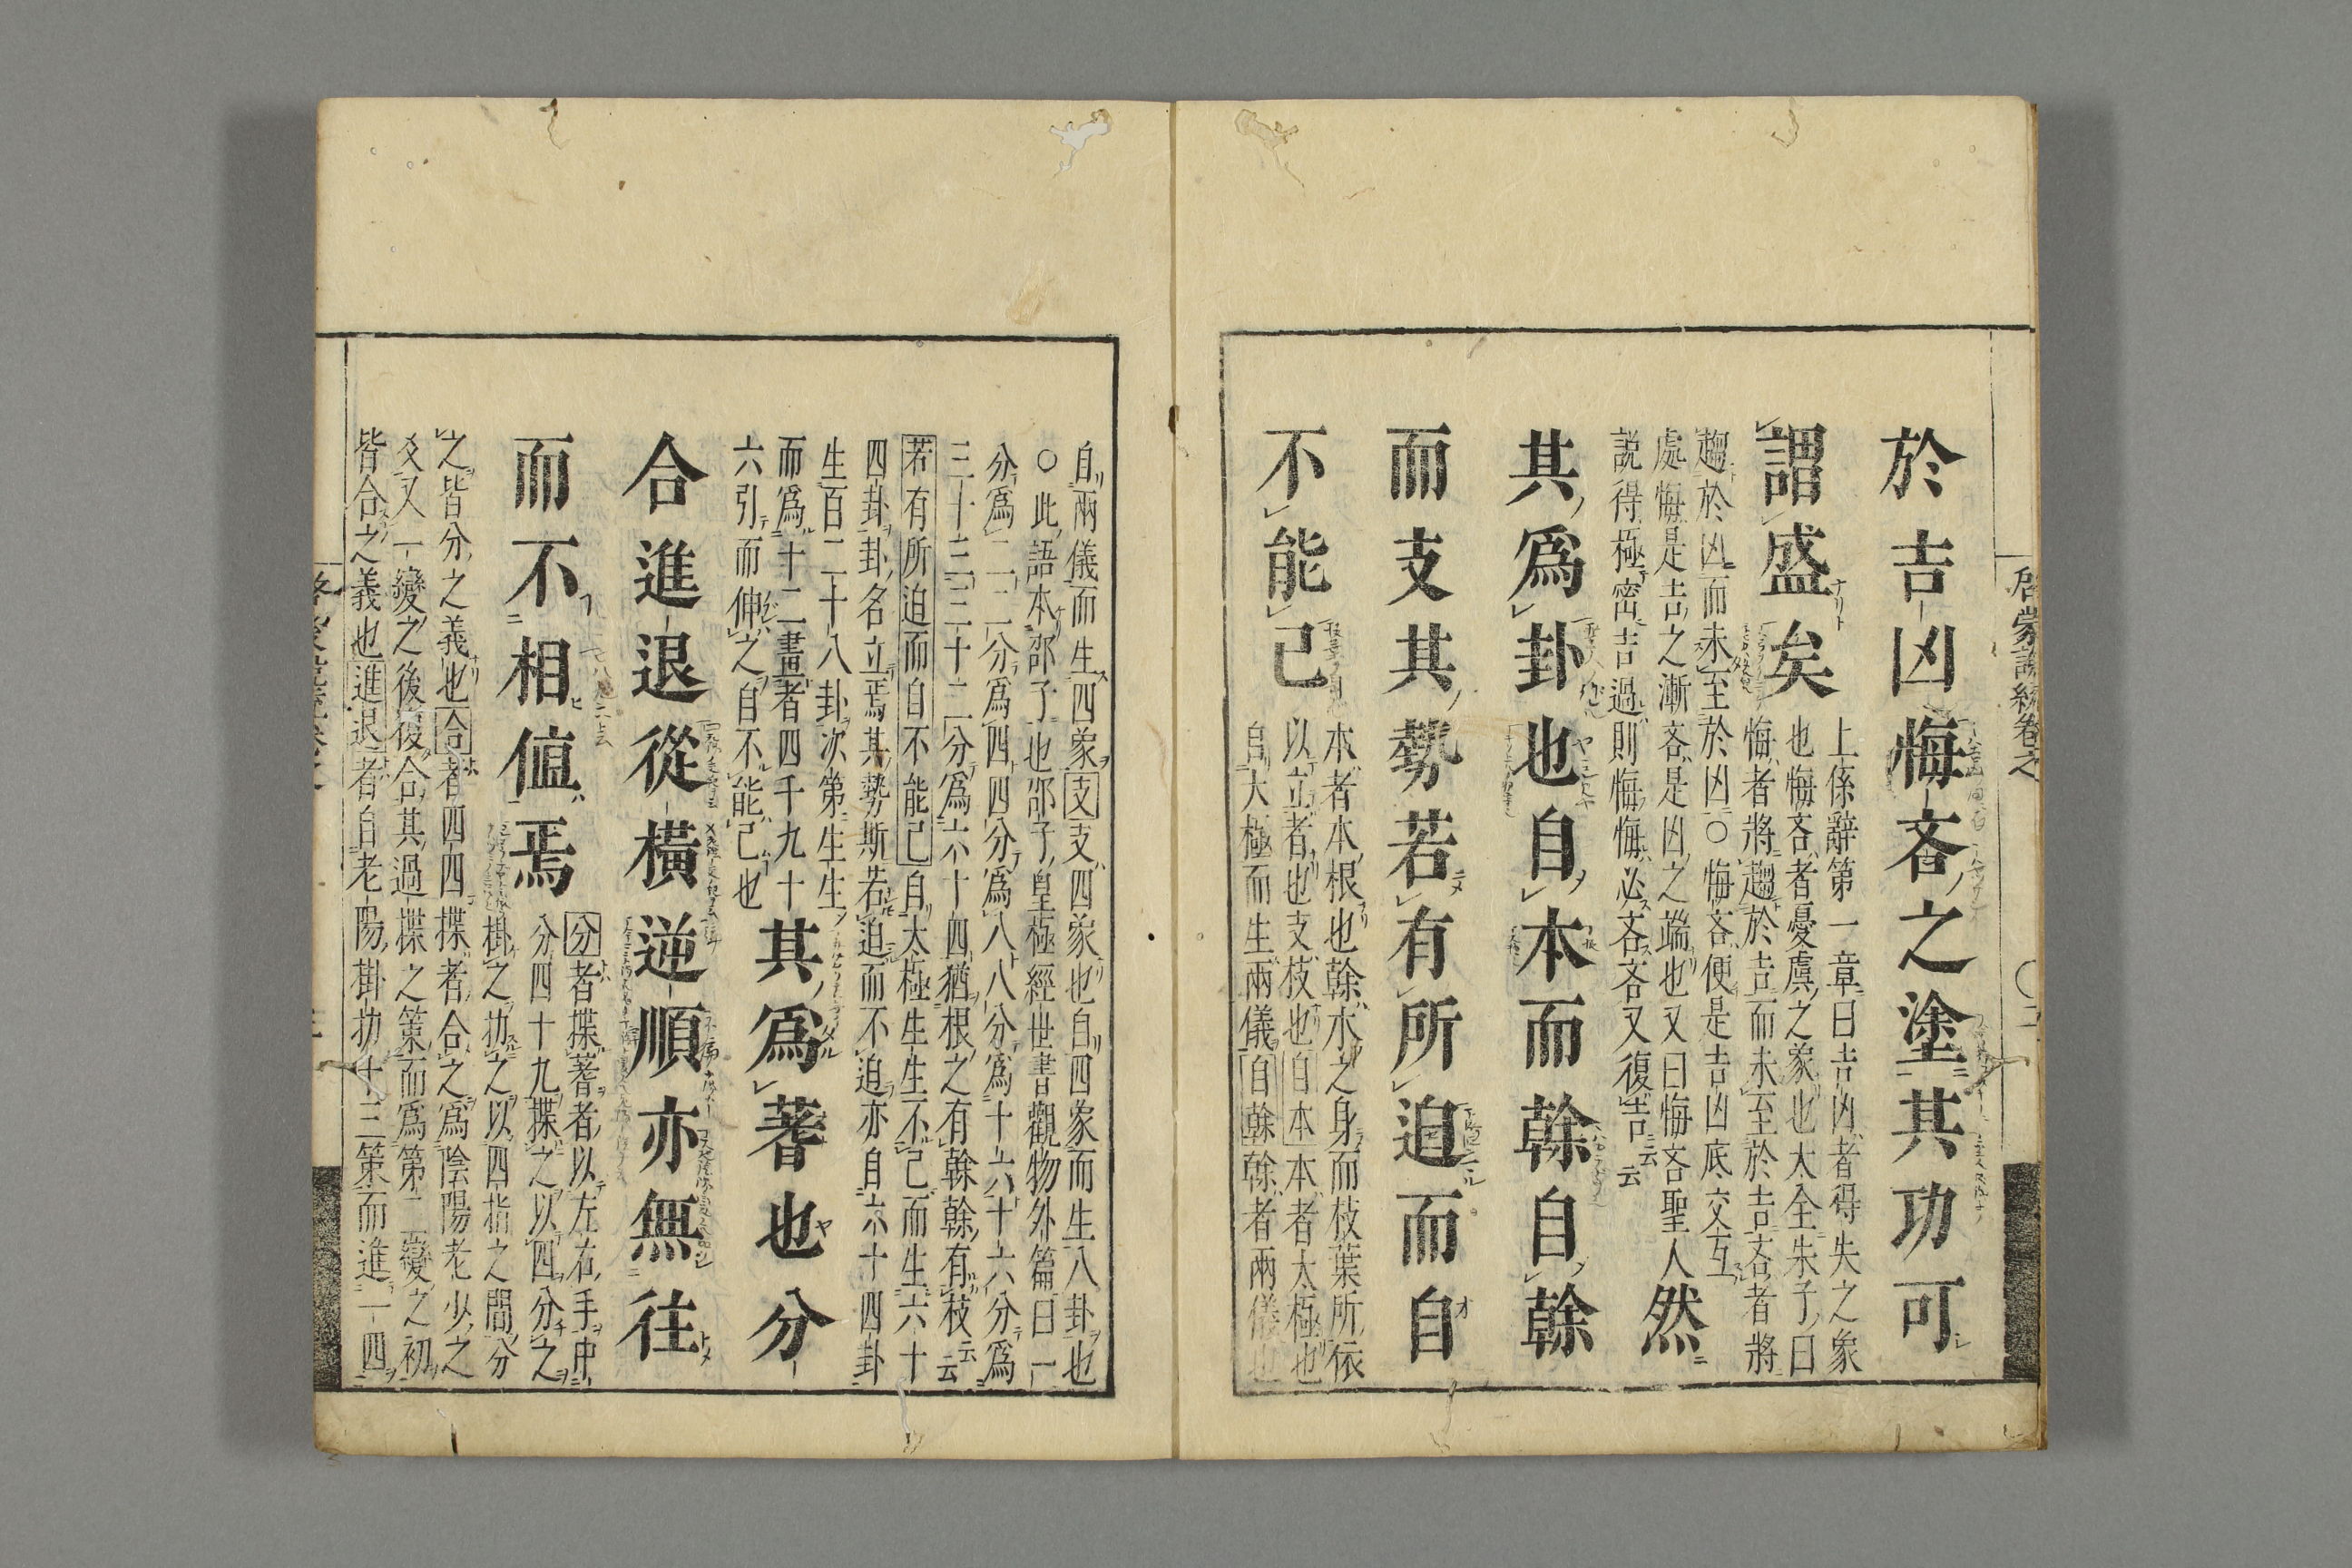 於吉凶悔吝之塗其功可
謂盛矣
上係辭第一章曰吉凶者得失之象
也悔吝者憂虞之象也大全朱子曰
悔者將趨於吉而未至於吉吝者將
趨於凶而未至於凶○悔吝便是吉凶底交互
處悔是吉之漸吝是凶之端也又曰悔吝聖人
説得極密吉過則悔悔必吝吝又復吉云云
然
其爲卦也自本而榦自榦
而支其勢若有所迫而自
不能已
本者本根也榦木之身而枝葉所依
以立者也支枝也自本本者太極也
自大極而生兩儀自榦榦者兩儀也
自兩儀而生四象支支四象也自四象而生八卦也
○此語本邵子也邵子皇極經世書觀物外篇曰一
分爲二二分爲四四分爲八八分爲十六十六分爲
三十二三十二分爲六十四猶根之有榦榦有枝云云
若有所迫而自不能已自太極生生不已而生六十
四卦卦名立焉其勢斯若迫而不迫亦自六十四卦
生百二十八卦次第生生
而爲十二畫者四千九十
六引而伸之自不能已也
其爲蓍也分
合進退從橫逆順亦無往
而不相値焉
分者揲蓍者以左右手中
分四十九揲之以四分之
掛之扐之以四指之間分
之皆分之義也合者四四揲者合之爲陰陽老少之
爻又一變之後復合其過揲之策而爲第二變之初
皆合之義也進退者自老陽掛扐十三策而進一四